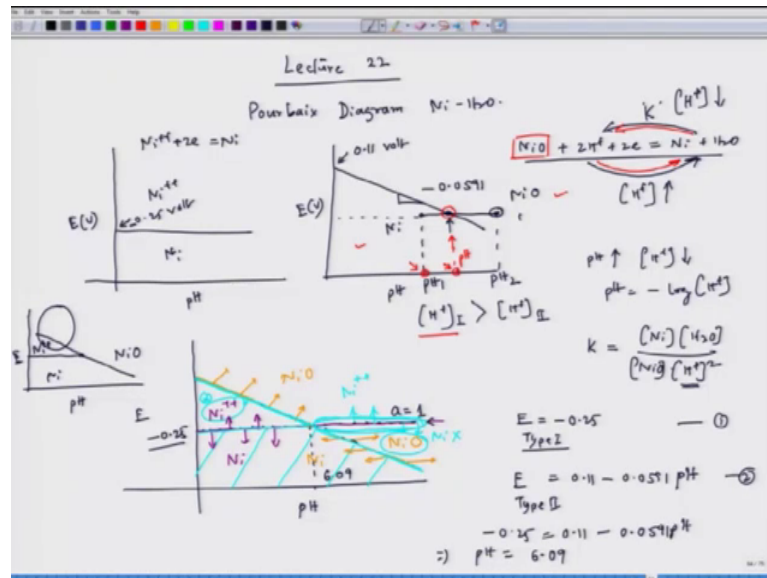 Lecture 22
Pourbaix Diagram Ni-H2O.
Ni++ + 2e = Ni
Ni++
-0.25 volt
E(V)
Ni
pH
0.11 volt
-0.0591
E(V)
Ni
NiO
pH
pH1
pH
pH2
[H+]I > [H+]II
K [H+]↓
NiO + 2H+ + 2e = Ni + H2O
[H+]↑
pH↑ [H+]↓
pH = - log [H+]
K = [Ni][H2O]
[NiO][H+]2
E
Ni++
NiO
Ni
pH
E
NiO
Ni++
Ni++
a=1
-0.25
Ni
Ni
NiO
NiX
6.09
pH
E = -0.25 — ①
Type I
E = 0.11 - 0.0591 pH — ②
Type II
-0.25 = 0.11 - 0.0591pH
⇒ pH = 6.09